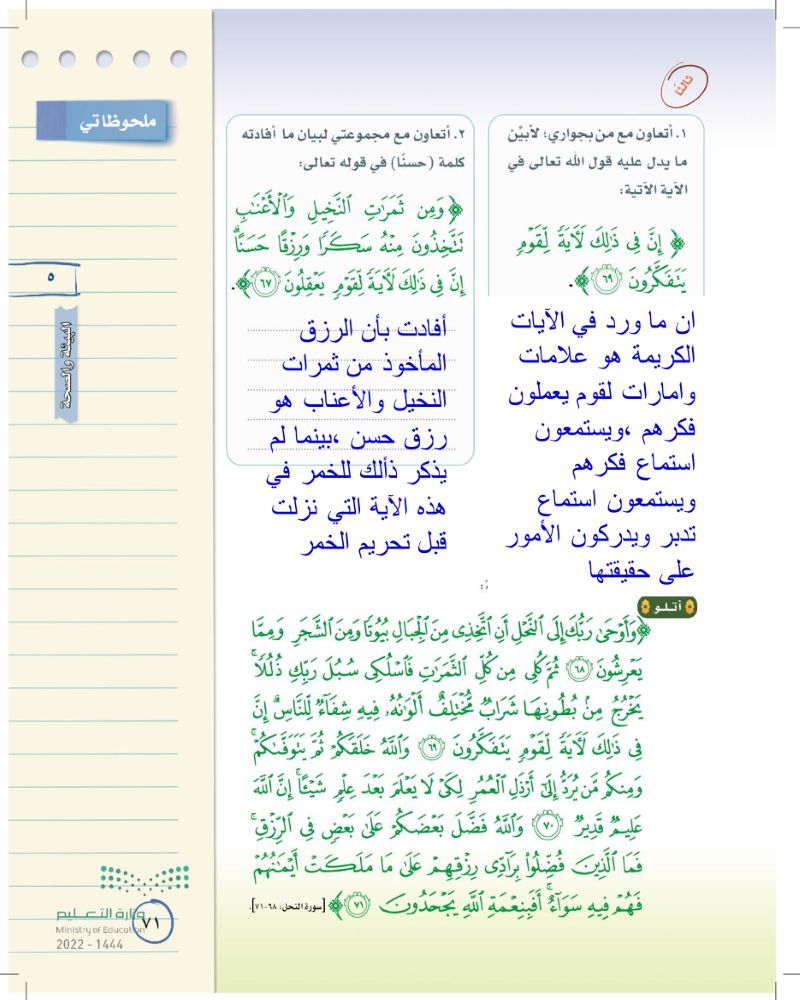 ثالثًا
ملحوظاتي
١. أتعاون مع من بجواري؛ لأبيِّن
ما يدل عليه قول الله تعالى في
الآية الآتية:
﴿ إِنَّ فِي ذَٰلِكَ لَآيَةً لِّقَوْمٍ
يَتَفَكَّرُونَ ٦٩ ﴾.
ان ما ورد في الآيات
الكريمة هو علامات
وامارات لقوم يعملون
فكرهم ،ويستمعون
استماع فكرهم
ويستمعون استماع
تدبر ويدركون الأمور
على حقيقتها
٢. أتعاون مع مجموعتي لبيان ما أفادته
كلمة (حسنًا) في قوله تعالى:
﴿ وَمِن ثَمَرَٰتِ ٱلنَّخِيلِ وَٱلْأَعْنَٰبِ
تَتَّخِذُونَ مِنْهُ سَكَرًا وَرِزْقًا حَسَنًا ۗ
إِنَّ فِي ذَٰلِكَ لَآيَةً لِّقَوْمٍ يَعْقِلُونَ ٦٧ ﴾.
أفادت بأن الرزق
المأخوذ من ثمرات
النخيل والأعناب هو
رزق حسن ،بينما لم
يذكر ذألك للخمر في
هذه الآية التي نزلت
قبل تحريم الخمر
٥
البيئة والصحة
أتلو
﴿ وَأَوْحَىٰ رَبُّكَ إِلَى ٱلنَّحْلِ أَنِ ٱتَّخِذِي مِنَ ٱلْجِبَالِ بُيُوتًا وَمِنَ ٱلشَّجَرِ وَمِمَّا
يَعْرِشُونَ ٦٨ ثُمَّ كُلِي مِن كُلِّ ٱلثَّمَرَٰتِ فَٱسْلُكِي سُبُلَ رَبِّكِ ذُلُلًا ۚ
يَخْرُجُ مِنۢ بُطُونِهَا شَرَابٌ مُّخْتَلِفٌ أَلْوَٰنُهُۥ فِيهِ شِفَآءٌ لِّلنَّاسِ ۗ إِنَّ
فِي ذَٰلِكَ لَآيَةً لِّقَوْمٍ يَتَفَكَّرُونَ ٦٩ وَٱللَّهُ خَلَقَكُمْ ثُمَّ يَتَوَفَّىٰكُمْ ۚ
وَمِنكُم مَّن يُرَدُّ إِلَىٰٓ أَرْذَلِ ٱلْعُمُرِ لِكَيْ لَا يَعْلَمَ بَعْدَ عِلْمٍ شَيْـًٔا ۚ إِنَّ ٱللَّهَ
عَلِيمٌ قَدِيرٌ ٧٠ وَٱللَّهُ فَضَّلَ بَعْضَكُمْ عَلَىٰ بَعْضٍ فِي ٱلرِّزْقِ ۚ
فَمَا ٱلَّذِينَ فُضِّلُوا۟ بِرَآدِّي رِزْقِهِمْ عَلَىٰ مَا مَلَكَتْ أَيْمَٰنُهُمْ
فَهُمْ فِيهِ سَوَآءٌ ۚ أَفَبِنِعْمَةِ ٱللَّهِ يَجْحَدُونَ ٧١ ﴾ [سورة النحل: ٦٨-٧١].
وزارة التعليم
Ministry of Education
2022 - 1444
٧١